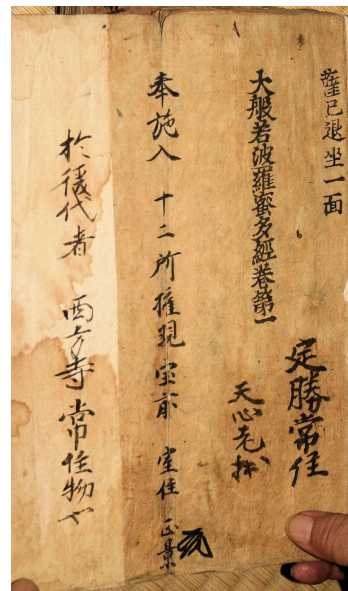 薩已退坐一面
大般若波羅蜜多經卷第一
定勝常住
天心
奉施入 十二所権現宝前 室住 正景
於後代者 西方寺常住物也